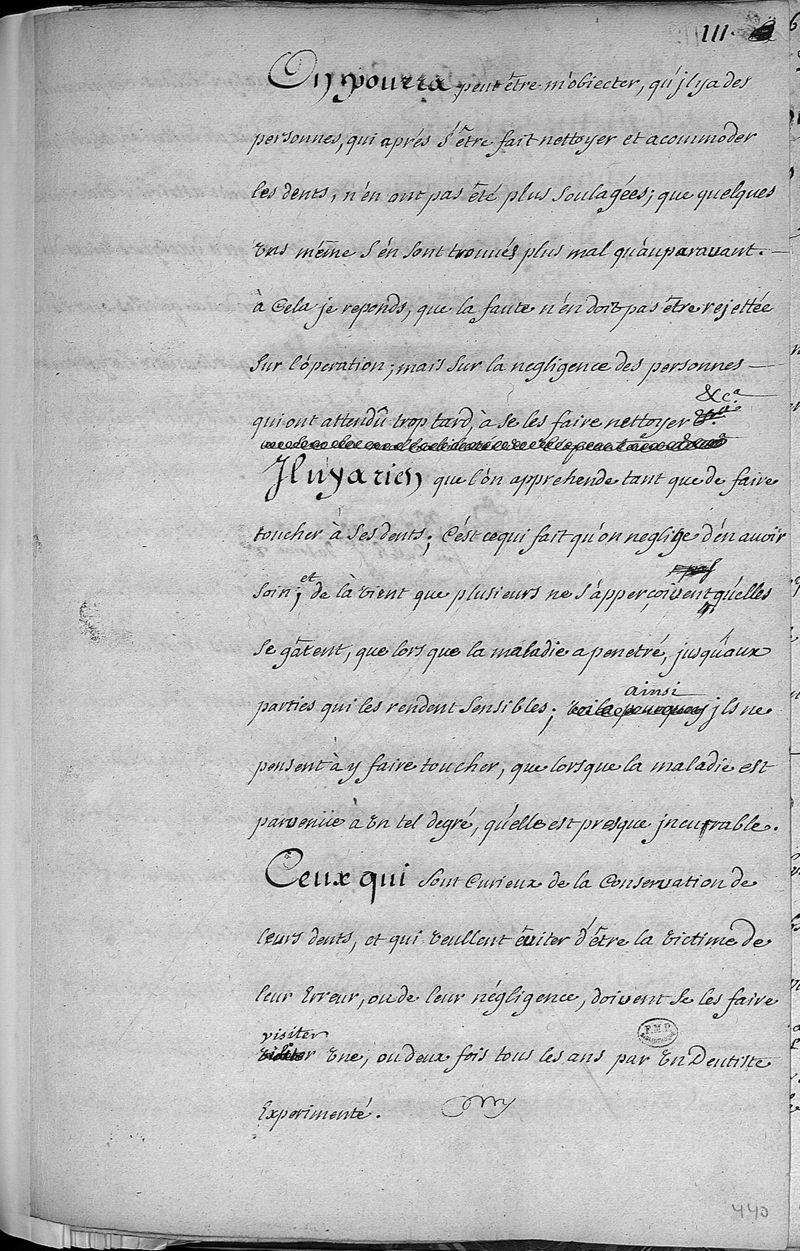 111.
On pourra peut être m'obiecter, qu'jl ya des
personnes, qui aprés s'être fait nettoyer et acommoder
les dents, n'én ont pas été plus soulagées; que quelques
uns même s'én sont trouvés plus mal qu'auparavant.
à Cela je reponds, que la faute n'én doit pas être rejettée
sur l'óperation; mais sur la negligence des personnes
&c.a
qui ont attendû trop tard, à se les faire nettoyer
Jl n'y a rien que l'ón apprehende tant que de faire
toucher à ses dents; C'ést ce qui fait qu'on neglige d'én avoir
soin; et de là vient que plusieurs ne s'apperçoivent qu'elles
se gâtent, que lors que la maladie a penetré, jusqu'aux
ainsi
parties qui les rendent sensibles; voila pourquoy jls ne
pensent à y faire toucher, que lorsque la maladie est
parvenüe à un tel degré, qu'elle est presque jncurable.
Ceux qui sont Curieux de la Conservation de
leurs dents, et qui veullent éviter d'être la victime de
leur Erreur, ou de leur négligence, doivent se les faire
visiter
une, ou deux fois tous les ans par un Dentiste
Experimenté.
F.M.P.
440